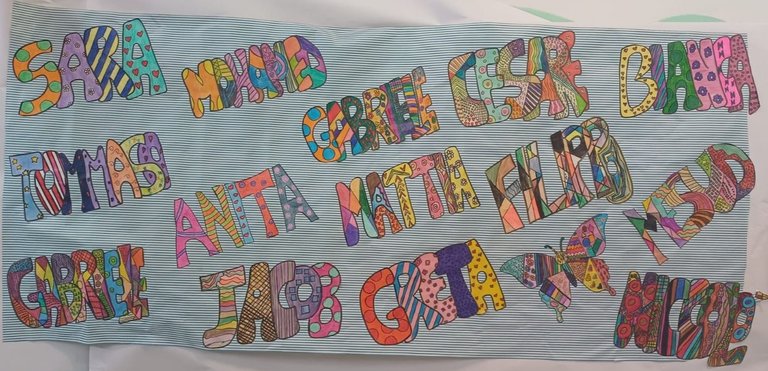 SARA MOHAMED GABRIELE CESARE BIANCA
TOMMASO ANITA MATTIA FILIPPO
GABRIELE JACOB GRETA NICCOLÒ